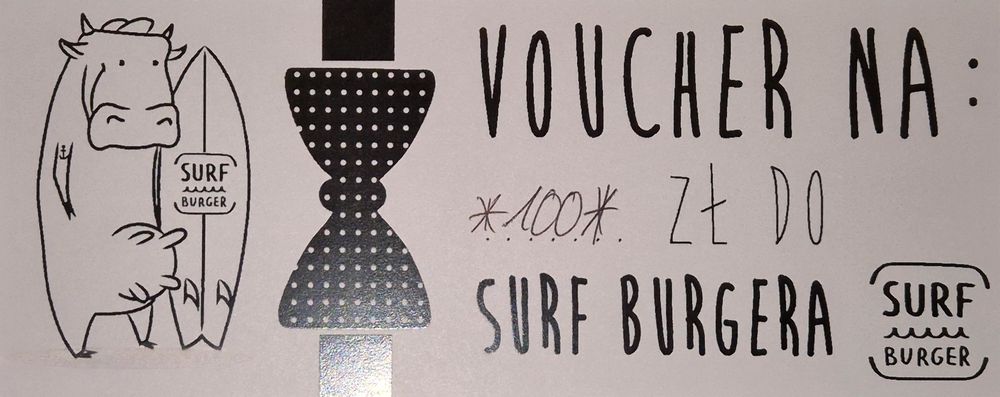 SURF
BURGER
VOUCHER NA:
*100* ZŁ DO
SURF BURGERA
SURF
BURGER